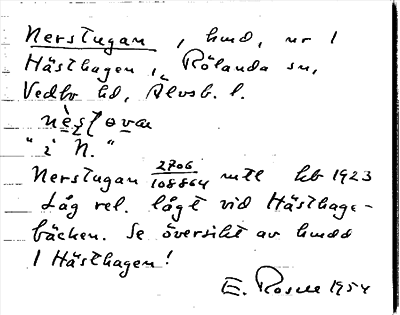 Nerstugan, hmd, nr 1
Hästhagen i, Rölanda sn,
Vedbo hd, Älvsb. l.
"i N."
Nerstugan 2706/108864 mtl Jb 1923
Låg rel. lågt vid Hästhage-
bäcken. Se översikt av hmdd
1 Hästhagen!
E. Rosell 1954